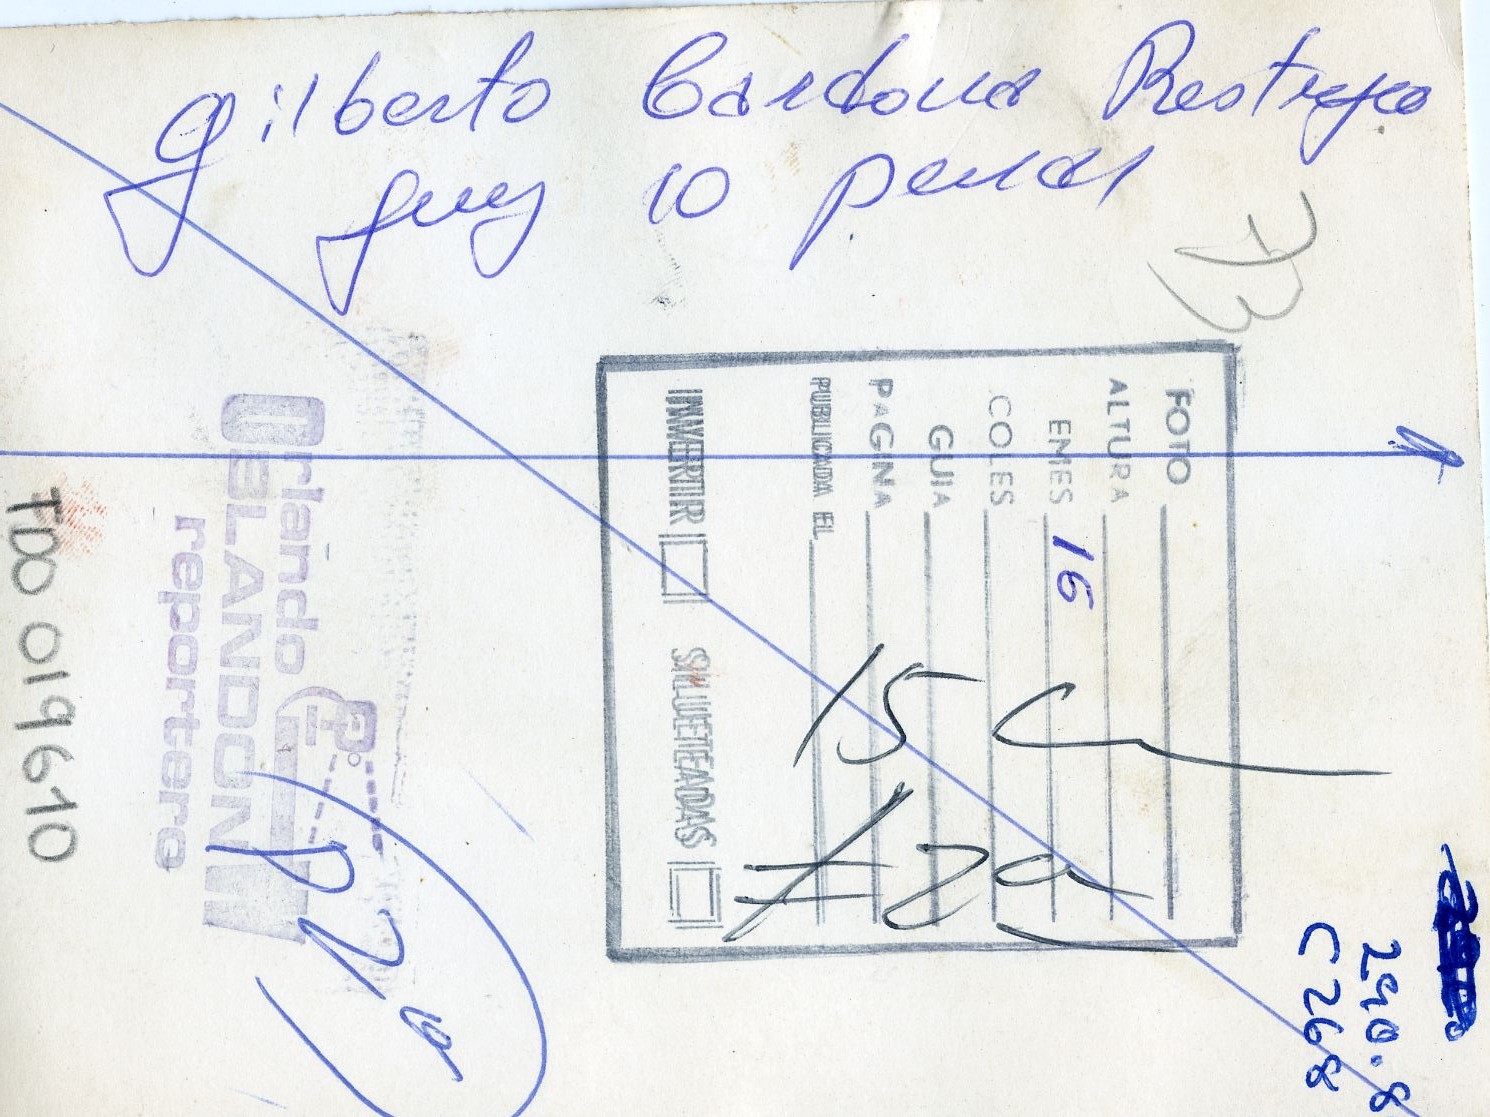 Gilberto Cardona Restrepo
juez 10 penal
73
FOTO
ALTURA
EMES 16
COLES
GUIA
PAGINA
PUBLICADA EL
INVERTIR
SILUETEADAS
15 C
Orlando
CELANDON
reportero
TDO 019610
290.8
C268